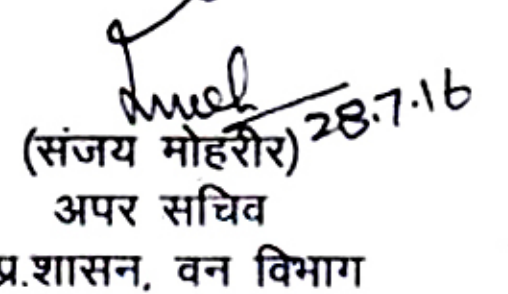 28.7.16
(संजय मोहरीर)
अपर सचिव
प्र.शासन, वन विभाग